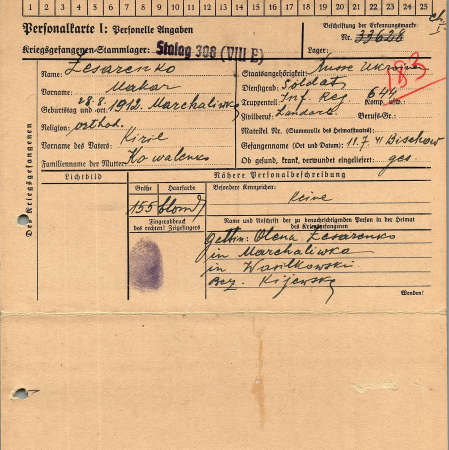 1 2 3 4 5 6 7 8 9 10 11 12 13 14 15 16 17 18 19 20 21 22 23 24 25
Personalkarte I: Personelle Angaben
Kriegsgefangenen-Stammlager: Stalag 308 (VIII E)
Beschriftung der Erkennungsmarke
Nr. 33628
Lager:
183
Des Kriegsgefangenen
Name: Zesarenko
Vorname: Makar
Geburtstag und -ort: 28.8.1912. Marchaliwka
Religion: orthod.
Vorname des Vaters: Kiril
Familienname der Mutter: Kowalenko
Staatsangehörigkeit: Russe Ukraine
Dienstgrad: Soldat
Truppenteil: Inf. Reg 644 Komp. usw.:
Zivilberuf: Landarb. Berufs-Gr.:
Matrikel Nr. (Stammrolle des Heimatstaates):
Gefangennahme (Ort und Datum): 11.7.41
Ob gesund, krank, verwundet eingeliefert: ges.
Lichtbild
Nähere Personalbeschreibung
Größe
Haarfarbe
Besondere Kennzeichen:
155
blond
Keine
Fingerabdruck
des rechten! Zeigefingers
Name und Anschrift der zu benachrichtigenden Person in der Heimat
des Kriegsgefangenen
Olena Zesarenko
in Marchaliwka
in Wasilkowski
Kijewsk
Wenden!